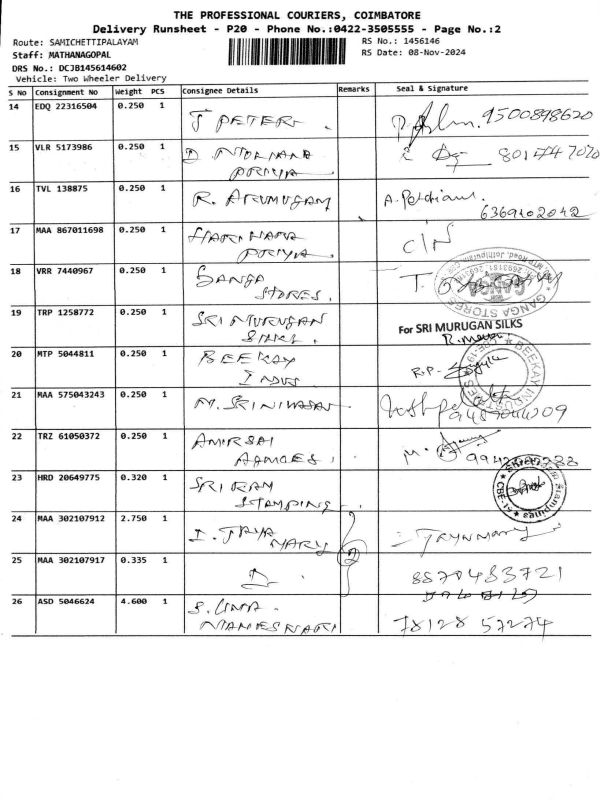 THE PROFESSIONAL COURIERS, COIMBATORE
Delivery Runsheet - P20 - Phone No.:0422-3505555 - Page No.:2
Route: SAMICHETTIPALAYAM
RS No.: 1456146
Staff: MATHANAGOPAL
RS Date: 08-Nov-2024
DRS No.: DCJB145614602
Vehicle: Two Wheeler Delivery
S No Consignment No Weight PCS Consignee Details Remarks Seal & Signature
14 EDQ 22316504 0.250 1 J PETER 9500898620
15 VLR 5173986 0.250 1 D
PRIYA
16 TVL 138875 0.250 1 R. ARUMUGAM
6369102042
17 MAA 867011698 0.250 1 HARI
PRIYA C/N
18 VRR 7440967 0.250 1 GANGA
STORES.
GANGA STORES
19 TRP 1258772 0.250 1 SRI MURUGAN
SILKS.
For SRI MURUGAN SILKS
20 MTP 5044811 0.250 1 BEEKAY
INDUS
BEEKAY INDUSTRIES
21 MAA 575043243 0.250 1 M. SRINIVASAN
22 TRZ 61050372 0.250 1 AMIRSAI
23 HRD 20649775 0.320 1 SRI RAM
STAMPING
24 MAA 302107912 2.750 1 I. JAYA
MARY 2
25 MAA 302107917 0.335 1 8870483721
26 ASD 5046624 4.600 1 S. UMA
MAHESWARI 78128 57274